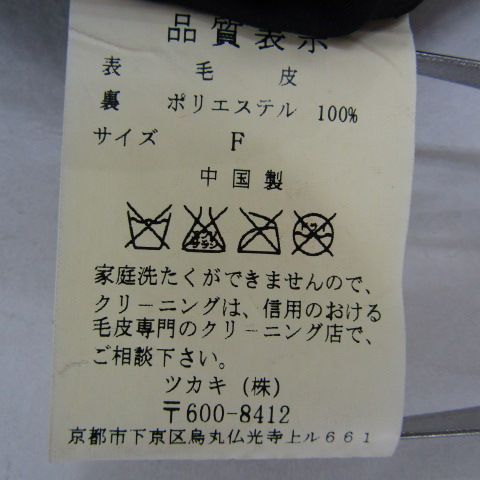 品質表示
表 毛皮
裏 ポリエステル 100%
サイズ F
中国製
エンソ サラシ
ドライ
家庭洗たくができませんので、
クリーニングは、信用のおける
毛皮専門のクリーニング店で、
ご相談下さい。
ツカキ(株)
〒600-8412
京都市下京区烏丸仏光寺上ル661